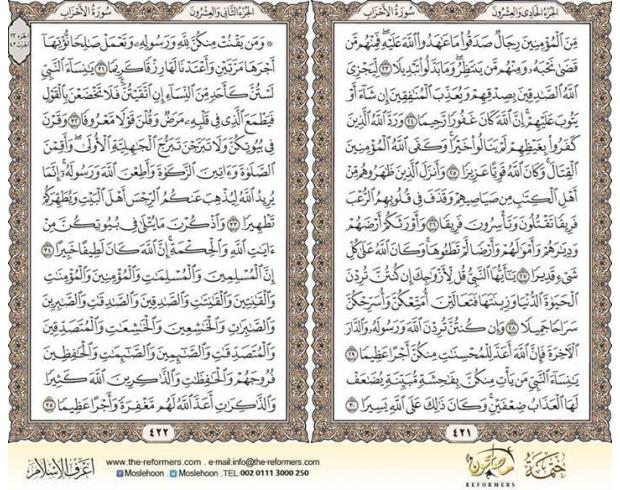 الجزء الحادي والعشرون
سورة الأحزاب
مِّنَ ٱلْمُؤْمِنِينَ رِجَالٌ صَدَقُوا۟ مَا عَٰهَدُوا۟ ٱللَّهَ عَلَيْهِ فَمِنْهُم مَّن
قَضَىٰ نَحْبَهُۥ وَمِنْهُم مَّن يَنتَظِرُ وَمَا بَدَّلُوا۟ تَبْدِيلًا ٢٣ لِّيَجْزِىَ
ٱللَّهُ ٱلصَّٰدِقِينَ بِصِدْقِهِمْ وَيُعَذِّبَ ٱلْمُنَٰفِقِينَ إِن شَآءَ أَوْ
يَتُوبَ عَلَيْهِمْ إِنَّ ٱللَّهَ كَانَ غَفُورًا رَّحِيمًا ٢٤ وَرَدَّ ٱللَّهُ ٱلَّذِينَ
كَفَرُوا۟ بِغَيْظِهِمْ لَمْ يَنَالُوا۟ خَيْرًا وَكَفَى ٱللَّهُ ٱلْمُؤْمِنِينَ
ٱلْقِتَالَ وَكَانَ ٱللَّهُ قَوِيًّا عَزِيزًا ٢٥ وَأَنزَلَ ٱلَّذِينَ ظَٰهَرُوهُم مِّنْ
أَهْلِ ٱلْكِتَٰبِ مِن صَيَاصِيهِمْ وَقَذَفَ فِى قُلُوبِهِمُ ٱلرُّعْبَ
فَرِيقًا تَقْتُلُونَ وَتَأْسِرُونَ فَرِيقًا ٢٦ وَأَوْرَثَكُمْ أَرْضَهُمْ
وَدِيَٰرَهُمْ وَأَمْوَٰلَهُمْ وَأَرْضًا لَّمْ تَطَـُٔوهَا وَكَانَ ٱللَّهُ عَلَىٰ كُلِّ
شَىْءٍ قَدِيرًا ٢٧ يَٰٓأَيُّهَا ٱلنَّبِىُّ قُل لِّأَزْوَٰجِكَ إِن كُنتُنَّ تُرِدْنَ
ٱلْحَيَوٰةَ ٱلدُّنْيَا وَزِينَتَهَا فَتَعَالَيْنَ أُمَتِّعْكُنَّ وَأُسَرِّحْكُنَّ
سَرَاحًا جَمِيلًا ٢٨ وَإِن كُنتُنَّ تُرِدْنَ ٱللَّهَ وَرَسُولَهُۥ وَٱلدَّارَ
ٱلْءَاخِرَةَ فَإِنَّ ٱللَّهَ أَعَدَّ لِلْمُحْسِنَٰتِ مِنكُنَّ أَجْرًا عَظِيمًا ٢٩
يَٰنِسَآءَ ٱلنَّبِىِّ مَن يَأْتِ مِنكُنَّ بِفَٰحِشَةٍ مُّبَيِّنَةٍ يُضَٰعَفْ
لَهَا ٱلْعَذَابُ ضِعْفَيْنِ وَكَانَ ذَٰلِكَ عَلَى ٱللَّهِ يَسِيرًا ٣٠
٤٢١
الجزء الثاني والعشرون
سورة الأحزاب
وَمَن يَقْنُتْ مِنكُنَّ لِلَّهِ وَرَسُولِهِۦ وَتَعْمَلْ صَٰلِحًا نُّؤْتِهَآ
أَجْرَهَا مَرَّتَيْنِ وَأَعْتَدْنَا لَهَا رِزْقًا كَرِيمًا ٣١ يَٰنِسَآءَ ٱلنَّبِىِّ
لَسْتُنَّ كَأَحَدٍ مِّنَ ٱلنِّسَآءِ إِنِ ٱتَّقَيْتُنَّ فَلَا تَخْضَعْنَ بِٱلْقَوْلِ
فَيَطْمَعَ ٱلَّذِى فِى قَلْبِهِۦ مَرَضٌ وَقُلْنَ قَوْلًا مَّعْرُوفًا ٣٢ وَقَرْنَ
فِى بُيُوتِكُنَّ وَلَا تَبَرَّجْنَ تَبَرُّجَ ٱلْجَٰهِلِيَّةِ ٱلْأُولَىٰ وَأَقِمْنَ
ٱلصَّلَوٰةَ وَءَاتِينَ ٱلزَّكَوٰةَ وَأَطِعْنَ ٱللَّهَ وَرَسُولَهُۥٓ إِنَّمَا
يُرِيدُ ٱللَّهُ لِيُذْهِبَ عَنكُمُ ٱلرِّجْسَ أَهْلَ ٱلْبَيْتِ وَيُطَهِّرَكُمْ
تَطْهِيرًا ٣٣ وَٱذْكُرْنَ مَا يُتْلَىٰ فِى بُيُوتِكُنَّ مِنْ
ءَايَٰتِ ٱللَّهِ وَٱلْحِكْمَةِ إِنَّ ٱللَّهَ كَانَ لَطِيفًا خَبِيرًا ٣٤
إِنَّ ٱلْمُسْلِمِينَ وَٱلْمُسْلِمَٰتِ وَٱلْمُؤْمِنِينَ وَٱلْمُؤْمِنَٰتِ
وَٱلْقَٰنِتِينَ وَٱلْقَٰنِتَٰتِ وَٱلصَّٰدِقِينَ وَٱلصَّٰدِقَٰتِ وَٱلصَّٰبِرِينَ
وَٱلصَّٰبِرَٰتِ وَٱلْخَٰشِعِينَ وَٱلْخَٰشِعَٰتِ وَٱلْمُتَصَدِّقِينَ
وَٱلْمُتَصَدِّقَٰتِ وَٱلصَّٰٓئِمِينَ وَٱلصَّٰٓئِمَٰتِ وَٱلْحَٰفِظِينَ
فُرُوجَهُمْ وَٱلْحَٰفِظَٰتِ وَٱلذَّٰكِرِينَ ٱللَّهَ كَثِيرًا
وَٱلذَّٰكِرَٰتِ أَعَدَّ ٱللَّهُ لَهُم مَّغْفِرَةً وَأَجْرًا عَظِيمًا ٣٥
٤٢٢
ختمة
مصلحون
REFORMERS
www.the-reformers.com . e-mail:info@the-reformers.com
Moslehoon . Moslehoon .TEL 002 0111 3000 250
اعرف الإسلام